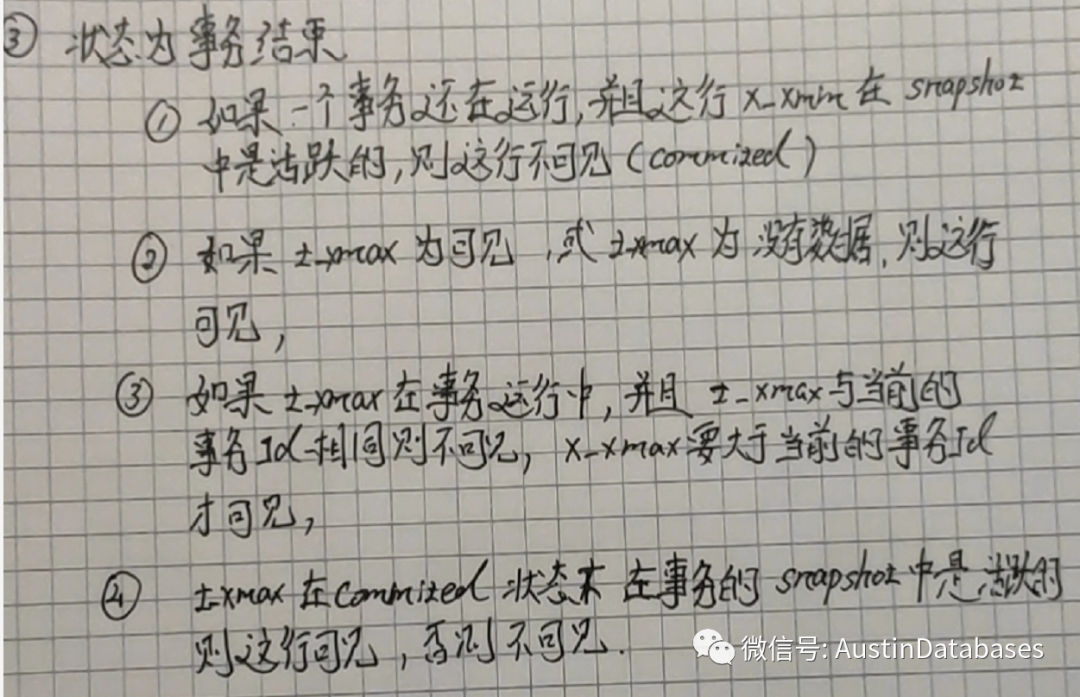 ③ 状态为事务结束
① 如果一个事务还在运行,并且这行 x_xmin 在 snapshot
中是活跃的,则这行不可见(commized)
② 如果 t_xmax 为可见,或 t_xmax 为没有数据,则这行
可见,
③ 如果 t_xmax 在事务运行中,并且 t_xmax 与当前的
事务Id相同则不可见, x_xmax要大于当前的事务Id
才可见,
④ t_xmax 在 commized 状态 在事务的 snapshot 中是活跃的
则这行可见,否则不可见.
微信号: AustinDatabases